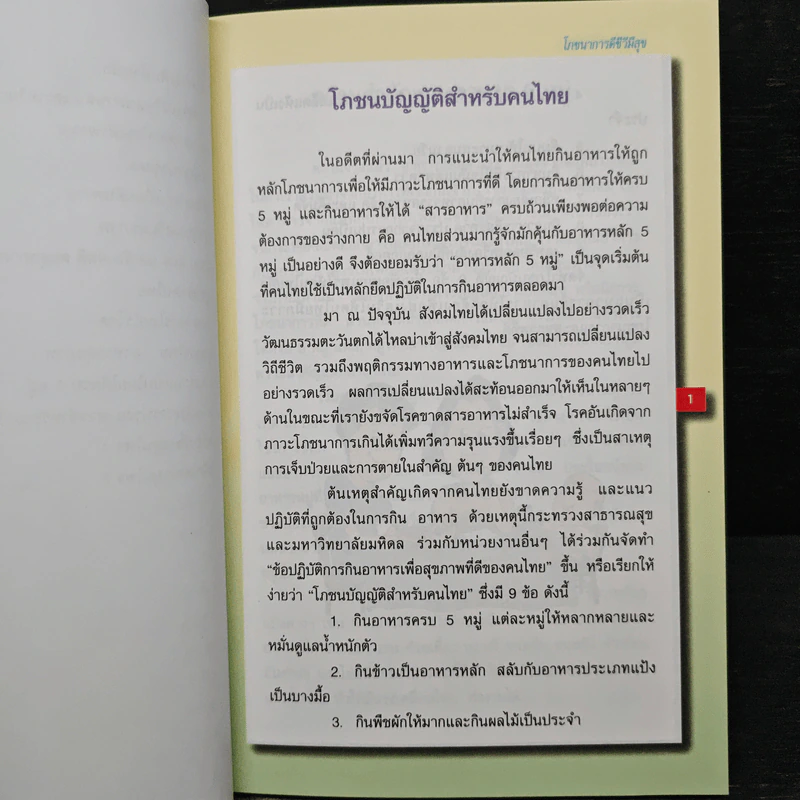 โภชนาการดีชีวีมีสุข
โภชนบัญญัติสำหรับคนไทย
ในอดีตที่ผ่านมา การแนะนำให้คนไทยกินอาหารให้ถูก
หลักโภชนาการเพื่อให้มีภาวะโภชนาการที่ดี โดยการกินอาหารให้ครบ
5 หมู่ และกินอาหารให้ได้ “สารอาหาร” ครบถ้วนเพียงพอต่อความ
ต้องการของร่างกาย คือ คนไทยส่วนมากรู้จักมักคุ้นกับอาหารหลัก 5
หมู่ เป็นอย่างดี จึงต้องยอมรับว่า “อาหารหลัก 5 หมู่” เป็นจุดเริ่มต้น
ที่คนไทยใช้เป็นหลักยึดปฏิบัติในการกินอาหารตลอดมา
มา ณ ปัจจุบัน สังคมไทยได้เปลี่ยนแปลงไปอย่างรวดเร็ว
วัฒนธรรมตะวันตกได้ไหลบ่าเข้าสู่สังคมไทย จนสามารถเปลี่ยนแปลง
วิถีชีวิต รวมถึงพฤติกรรมทางอาหารและโภชนาการของคนไทยไป
อย่างรวดเร็ว ผลการเปลี่ยนแปลงได้สะท้อนออกมาให้เห็นในหลายๆ
ด้านในขณะที่เรายังขจัดโรคขาดสารอาหารไม่สำเร็จ โรคอันเกิดจาก
ภาวะโภชนาการเกินได้เพิ่มทวีความรุนแรงขึ้นเรื่อยๆ ซึ่งเป็นสาเหตุ
การเจ็บป่วยและการตายในสำคัญ ต้นๆ ของคนไทย
ต้นเหตุสำคัญเกิดจากคนไทยยังขาดความรู้ และแนว
ปฏิบัติที่ถูกต้องในการกิน อาหาร ด้วยเหตุนี้กระทรวงสาธารณสุข
และมหาวิทยาลัยมหิดล ร่วมกับหน่วยงานอื่นๆ ได้ร่วมกันจัดทำ
“ข้อปฏิบัติการกินอาหารเพื่อสุขภาพที่ดีของคนไทย” ขึ้น หรือเรียกให้
ง่ายว่า “โภชนบัญญัติสำหรับคนไทย” ซึ่งมี 9 ข้อ ดังนี้
1. กินอาหารครบ 5 หมู่ แต่ละหมู่ให้หลากหลายและ
หมั่นดูแลน้ำหนักตัว
2. กินข้าวเป็นอาหารหลัก สลับกับอาหารประเภทแป้ง
เป็นบางมื้อ
3. กินพืชผักให้มากและกินผลไม้เป็นประจำ
1